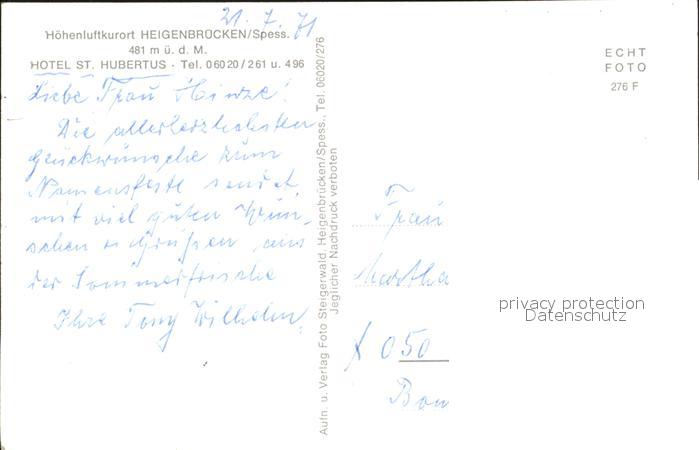 21. 7. 71
Höhenluftkurort HEIGENBRÜCKEN/Spess.
481 m ü. d. M.
HOTEL ST. HUBERTUS - Tel. 06020/261 u. 496
Liebe Frau Hinze!
Die allerherzlichsten
Glückwünsche zum
Namensfeste sendet
mit viel guten Wün-
schen u Grüßen aus
der Sommerfrische
Ihre Tony Wilhelm.
Aufn. u. Verlag Foto Steigerwald, Heigenbrücken/Spess., Tel. 06020/276
Jeglicher Nachdruck verboten
ECHT
FOTO
276 F
Frau
Martha
privacy protection
Datenschutz
050